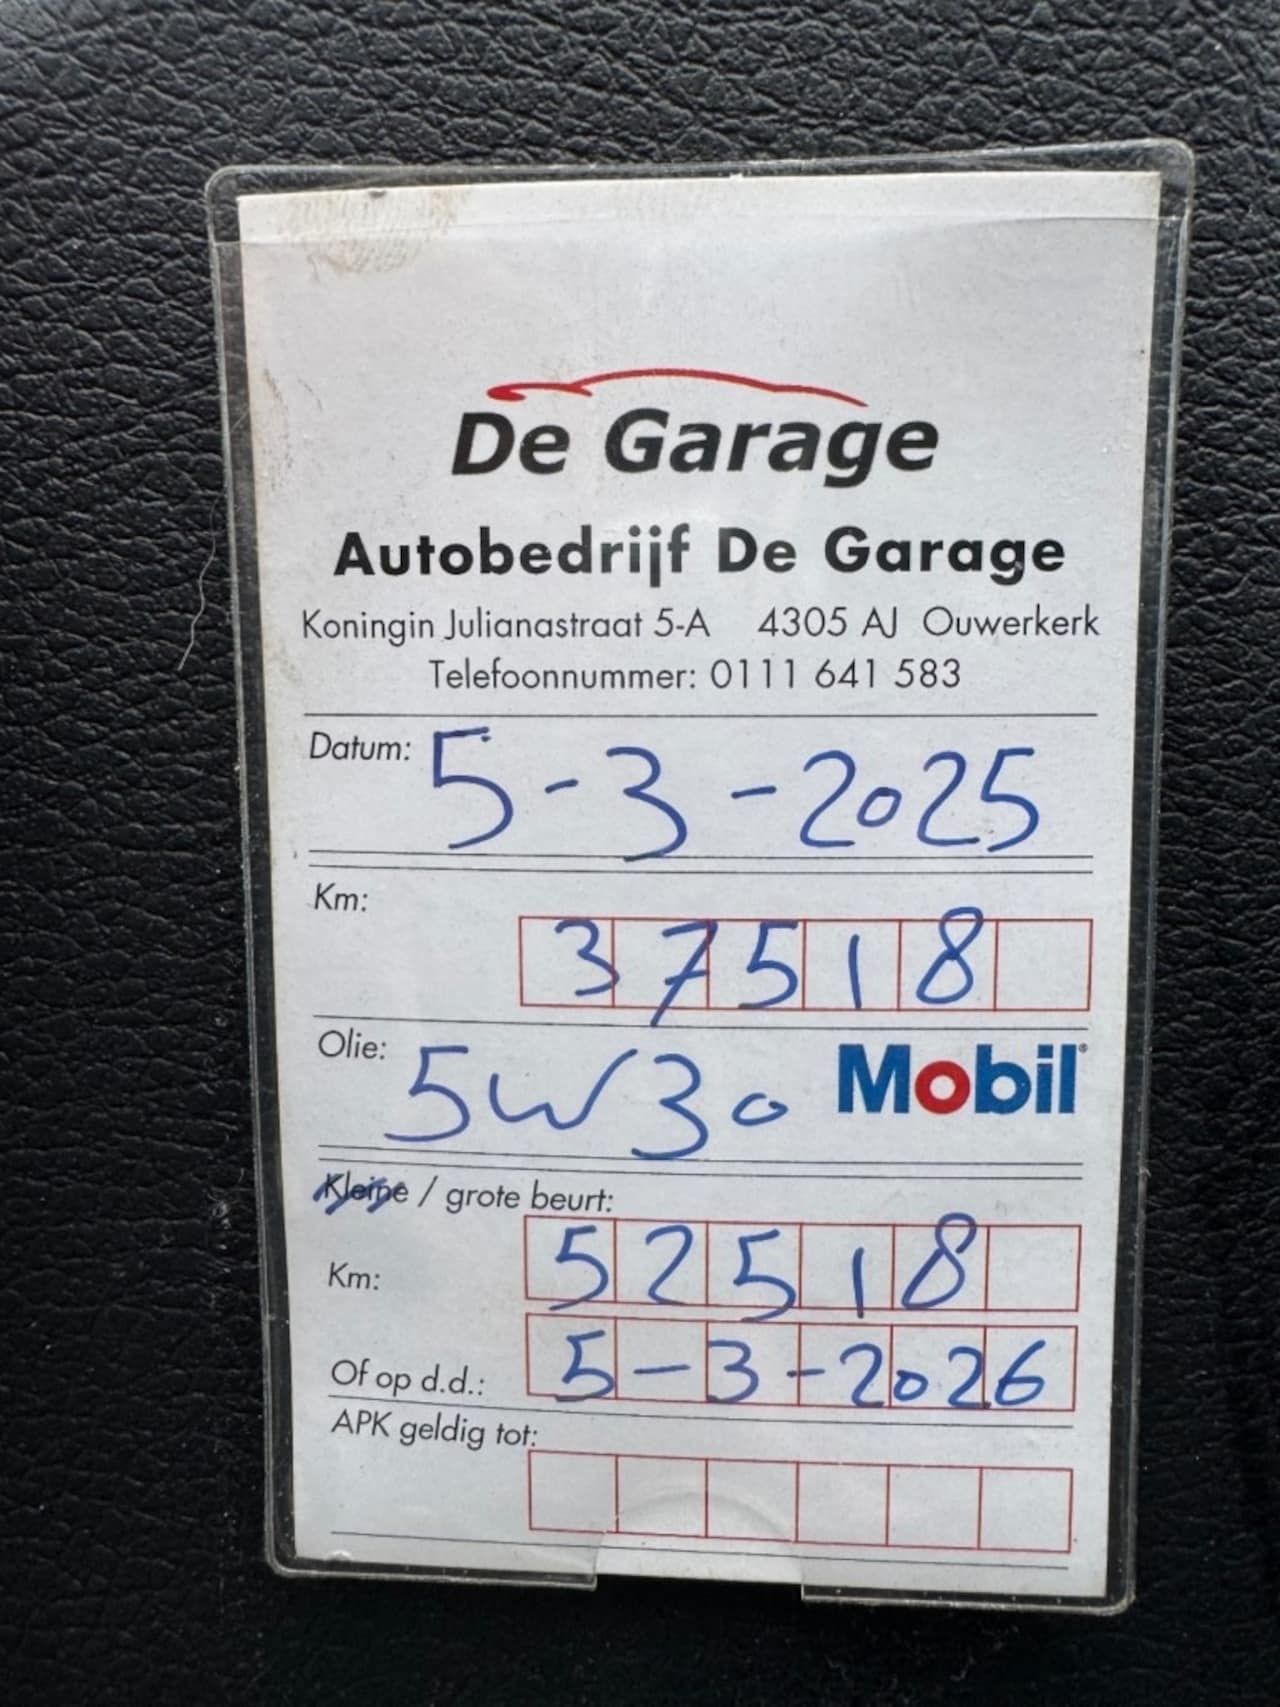 De Garage
Autobedrijf De Garage
Koningin Julianastraat 5-A 4305 AJ Ouwerkerk
Telefoonnummer: 0111 641 583
Datum: 5-3-2025
Km: 37518
Olie: 5W30 Mobil
Kleine / grote beurt:
Km: 52518
Of op d.d.: 5-3-2026
APK geldig tot: